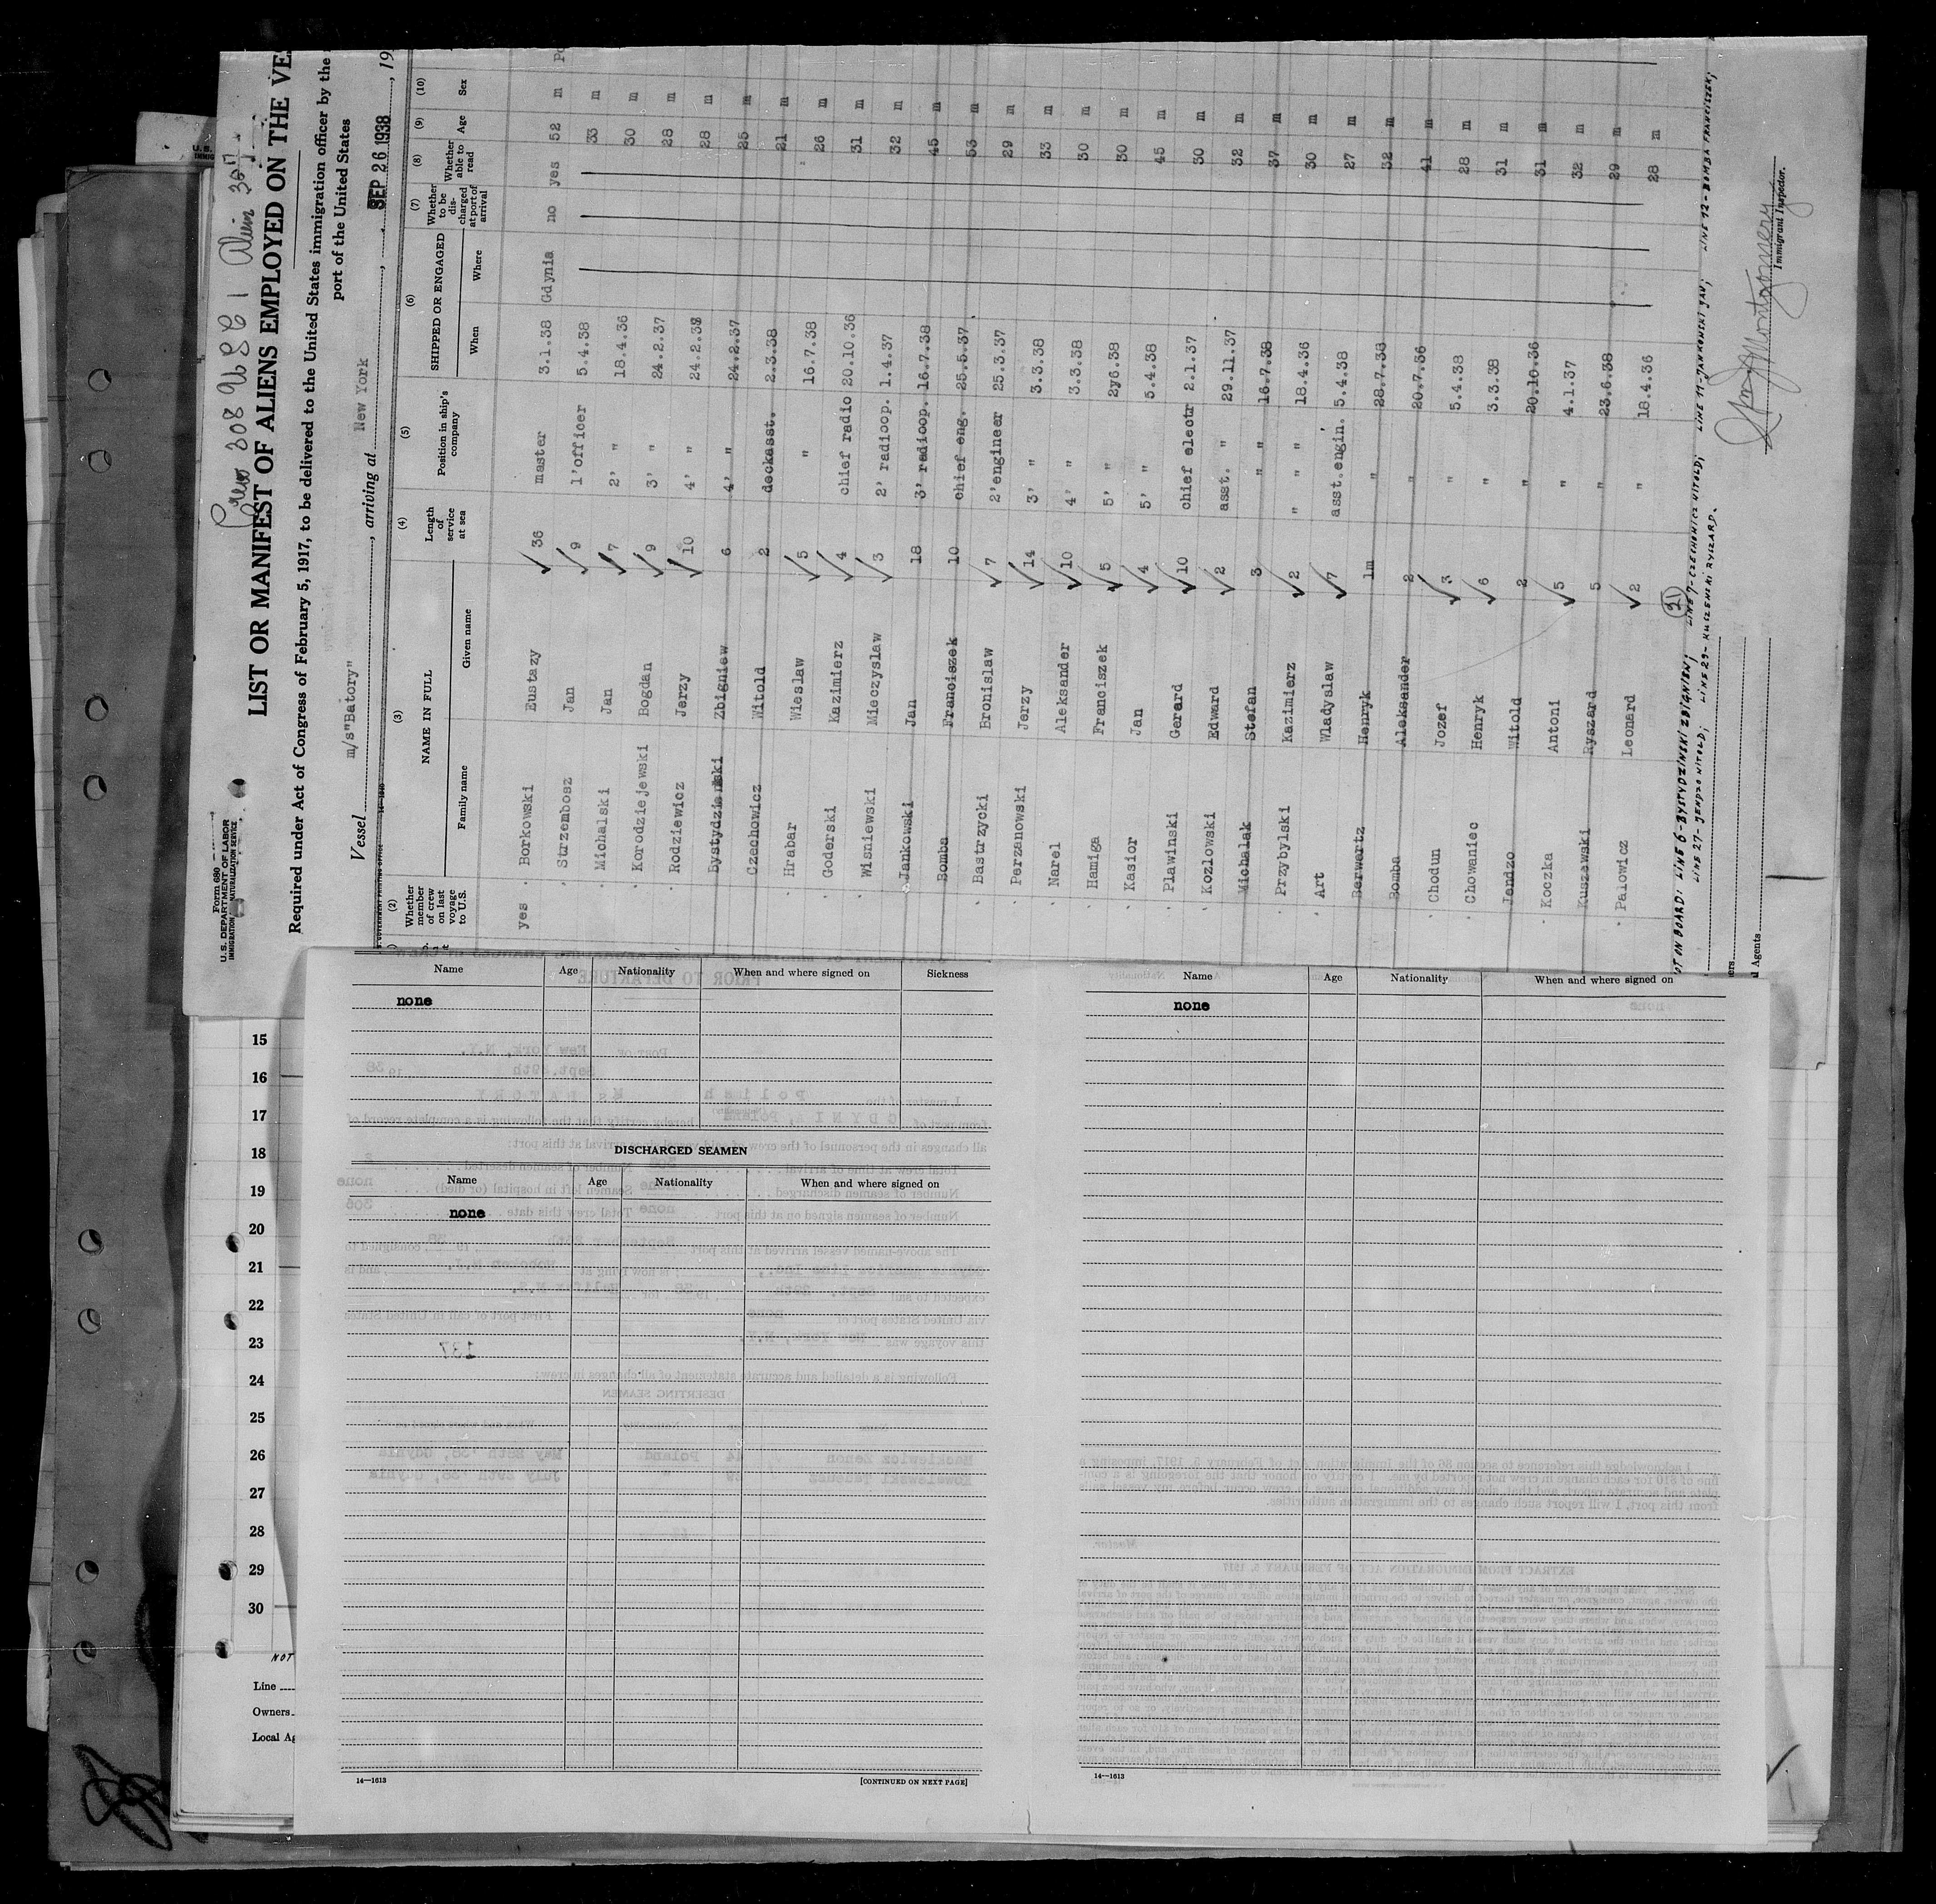 Form 680
U. S. DEPARTMENT OF LABOR
IMMIGRATION NATURALIZATION SERVICE
Crew 308 Alien 307
LIST OR MANIFEST OF ALIENS EMPLOYED ON THE VE
Required under Act of Congress of February 5, 1917, to be delivered to the United States immigration officer by the
port of the United States
Vessel m/s"Batory" , arriving at New York , SEP 26 1938 , 19
(2) (3) (4) (5) (6) (7) (8) (9) (10)
Whether member of crew on last voyage to U.S. NAME IN FULL Length of service at sea Position in ship's company SHIPPED OR ENGAGED Whether to be discharged at port of arrival Whether able to read Age Sex
Family name Given name When Where
yes Borkowski Eustazy 36 master 3.1.38 Gdynia no yes 52 m
Strzembosz Jan 9 1'officer 5.4.38 33 m
Michalski Jan 7 2' " 18.4.36 30 m
Korodziejewski Bogdan 9 3' " 24.2.37 28 m
Rodziewicz Jerzy 10 4' " 24.2.38 28 m
Bystydzienski Zbigniew 6 4' " 24.2.37 25 m
Czechowicz Witold 2 deckasst. 2.3.38 21 m
Hrabar Wieslaw 5 " 16.7.38 26 m
Goderski Kazimierz 4 chief radio 20.10.36 31 m
Wisniewski Mieczyslaw 3 2' radioop. 1.4.37 32 m
Jankowski Jan 18 3' radioop. 16.7.38 45 m
Bomba Franciszek 10 chief eng. 25.5.37 53 m
Bastrzycki Bronislaw 7 2'engineer 25.3.37 29 m
Perzanowski Jerzy 14 3' " 3.3.38 33 m
Narel Aleksander 10 4' " 3.3.38 30 m
Hamiga Franciszek 5 5' " 2y6.38 30 m
Kasior Jan 4 5' " 5.4.38 45 m
Plawinski Gerard 10 chief electr 2.1.37 30 m
Kozlowski Edward 2 asst. " 29.11.37 32 m
Michalak Stefan 3 " " 16.7.38 37 m
Przybylski Kazimierz 2 " " " 18.4.36 30 m
Art Wladyslaw 7 asst.engin. 5.4.38 27 m
Berwartz Henryk 1m " 28.7.38 32 m
Bomba Aleksander 2 " 20.7.36 41 m
Chodun Jozef 3 " 5.4.38 28 m
Chowaniec Henryk 6 " 3.3.38 31 m
Jendzo Witold 2 " 20.10.36 31 m
Koczka Antoni 5 " 4.1.37 32 m
Kuszewski Ryszard 5 " 23.6.38 29 m
Palowicz Leonard 2 " 18.4.36 28 m
(21)
OT ON BOARD: LINE 6-BYSTYDZINSKI ZBIGNIEW; LINE 7-CZECHOWICZ WITOLD; LINE 11-JANKOWSKI JAN; LINE 12-BOMBA FRANCISZEK;
LINE 27-JENDZO WITOLD; LINE 29-KUSZEWSKI RYSZARD.
Montgomery
Immigrant Inspector.
Agents
Name Age Nationality When and where signed on Sickness
none
DISCHARGED SEAMEN
Name Age Nationality When and where signed on
none
14—1613 [CONTINUED ON NEXT PAGE]
Name Age Nationality When and where signed on
none
14—1613
15
16
17
18
19
20
21
22
23
24
25
26
27
28
29
30
NOT
Line
Owners
Local Ag